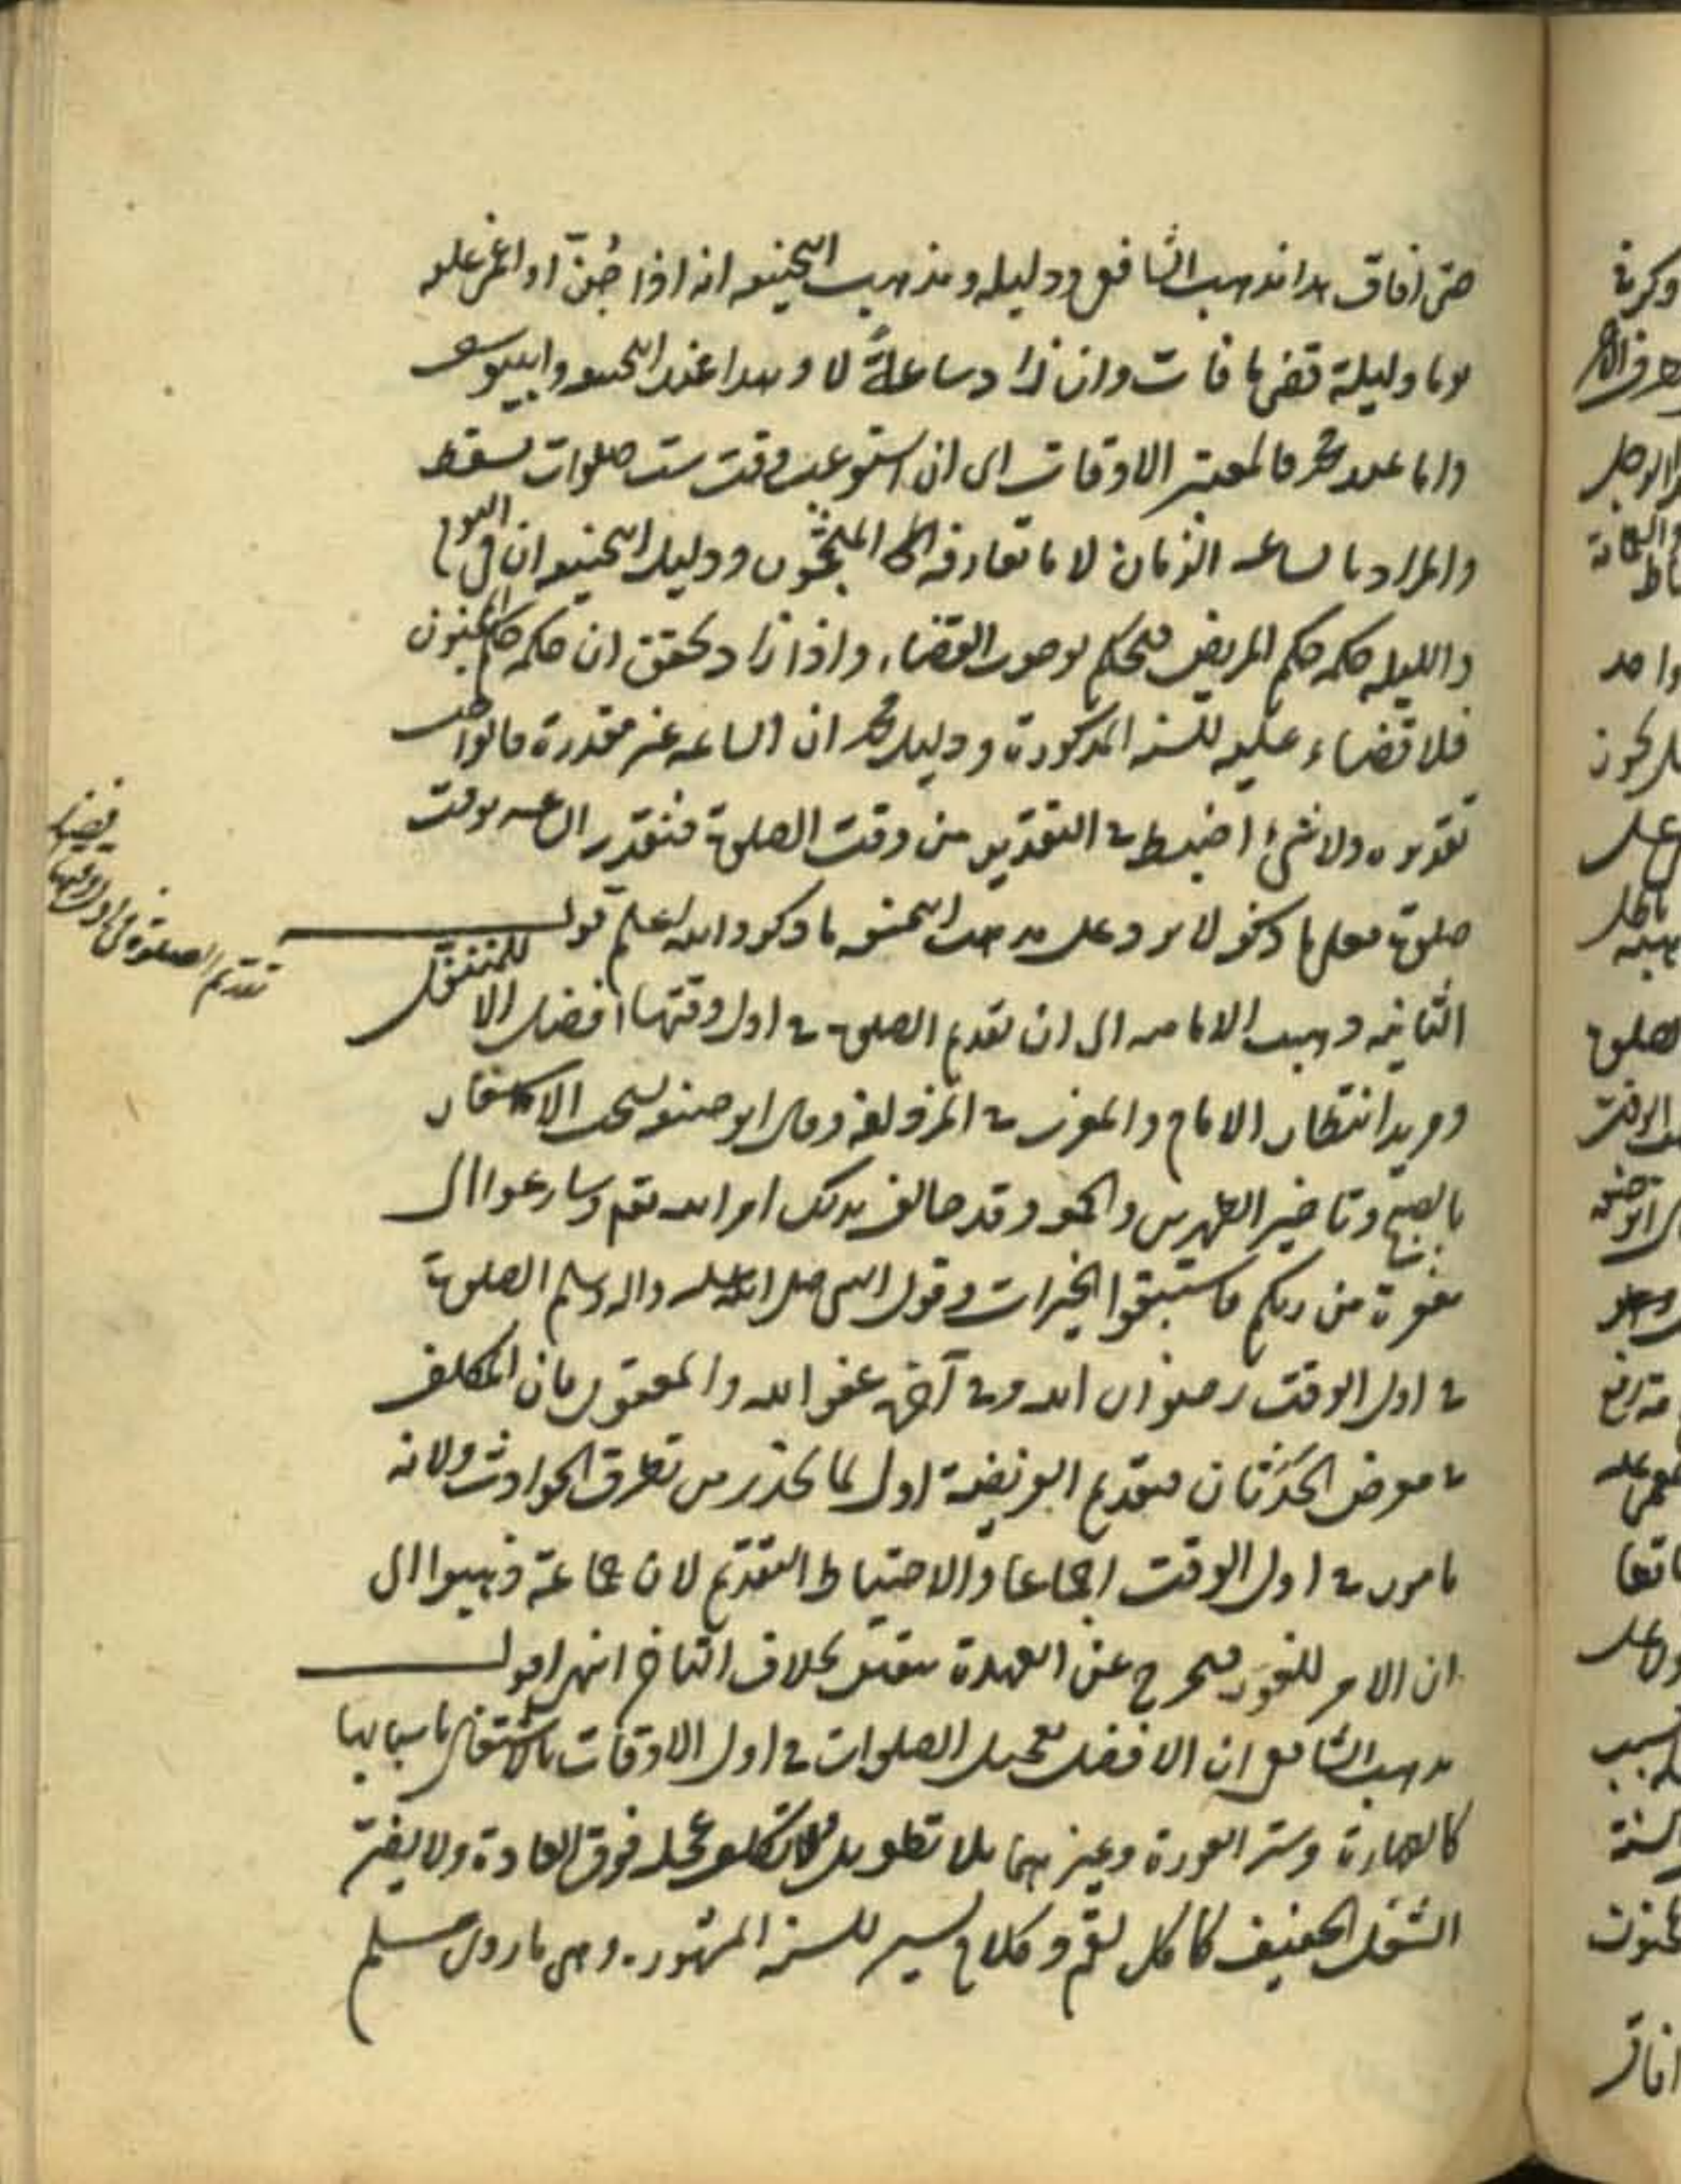 حتى افاق هذا مذهب الشافعي ودليله ومذهب الحنيفه انه اذا جُنّ او اغمي عليه
يوما وليلة قضى ما فات وان زاد ساعةً لا وهذا عند ابحنيفه وابييوسف
واما عند محمد فالمعتبر الاوقات اى ان استوعب وقت ست صلوات تسقط
والمراد بالساعه الزمان لا ما تعارفه المنجمون ودليل ابحنيفه ان في اليوم
والليله حكمه حكم المريض فيحكم بوجوب القضاء واذا زاد تحقق ان حكمه حكم المجنون
فلا قضاء عليه للسنه المذكورة ودليل محمد ان الساعه غير مقدرة فالواجب
تقديره ولا شئ اضبط في التقدير من وقت الصلوة فتقدر الساعه بوقت
صلوة فعلى ما ذكر لا يرد على مذهب ابحنيفه ما ذكر والله اعلم قول
الثانيه ذهبت الاماميه الى ان تقديم الصلوة في اول وقتها افضل الا للمتنفل
ومريد انتظار الامام والمغرب في المزدلفه وقال ابو حنيفه يستحب الاسفار
بالصبح وتاخير الظهرين والجمعه وقد خالف بذلك امر الله تعم وسارعوا الى
مغفرة من ربكم فاستبقوا الخيرات وقول النبي صلى الله عليه واله وسلم الصلوة
في اول الوقت رضوان الله وفي آخره عفو الله والمعقول فان المكلف
في معرض الحدثان فتقديم الفريضة اولى لما يحذر من تطرق الحوادث ولانه
مامور في اول الوقت اجماعا والاحتياط التقديم لان جماعة ذهبوا الى
ان الامر للفور فيخرج عن العهدة بيقين بخلاف التاخر انتهى اقول
مذهب الشافعي ان الافضل تعجيل الصلوات في اول الاوقات بالاشتغال باسبابها
كالطهارة وستر العورة وغيرهما بلا تطويل ولا تكلف عجله فوق العادة ولا يضر
الشغل الخفيف كاكل لقم وكلام يسير للسنه المشهوره وهى ما روى مسلم
تقديم الصلوة في اول وقتها
افضل